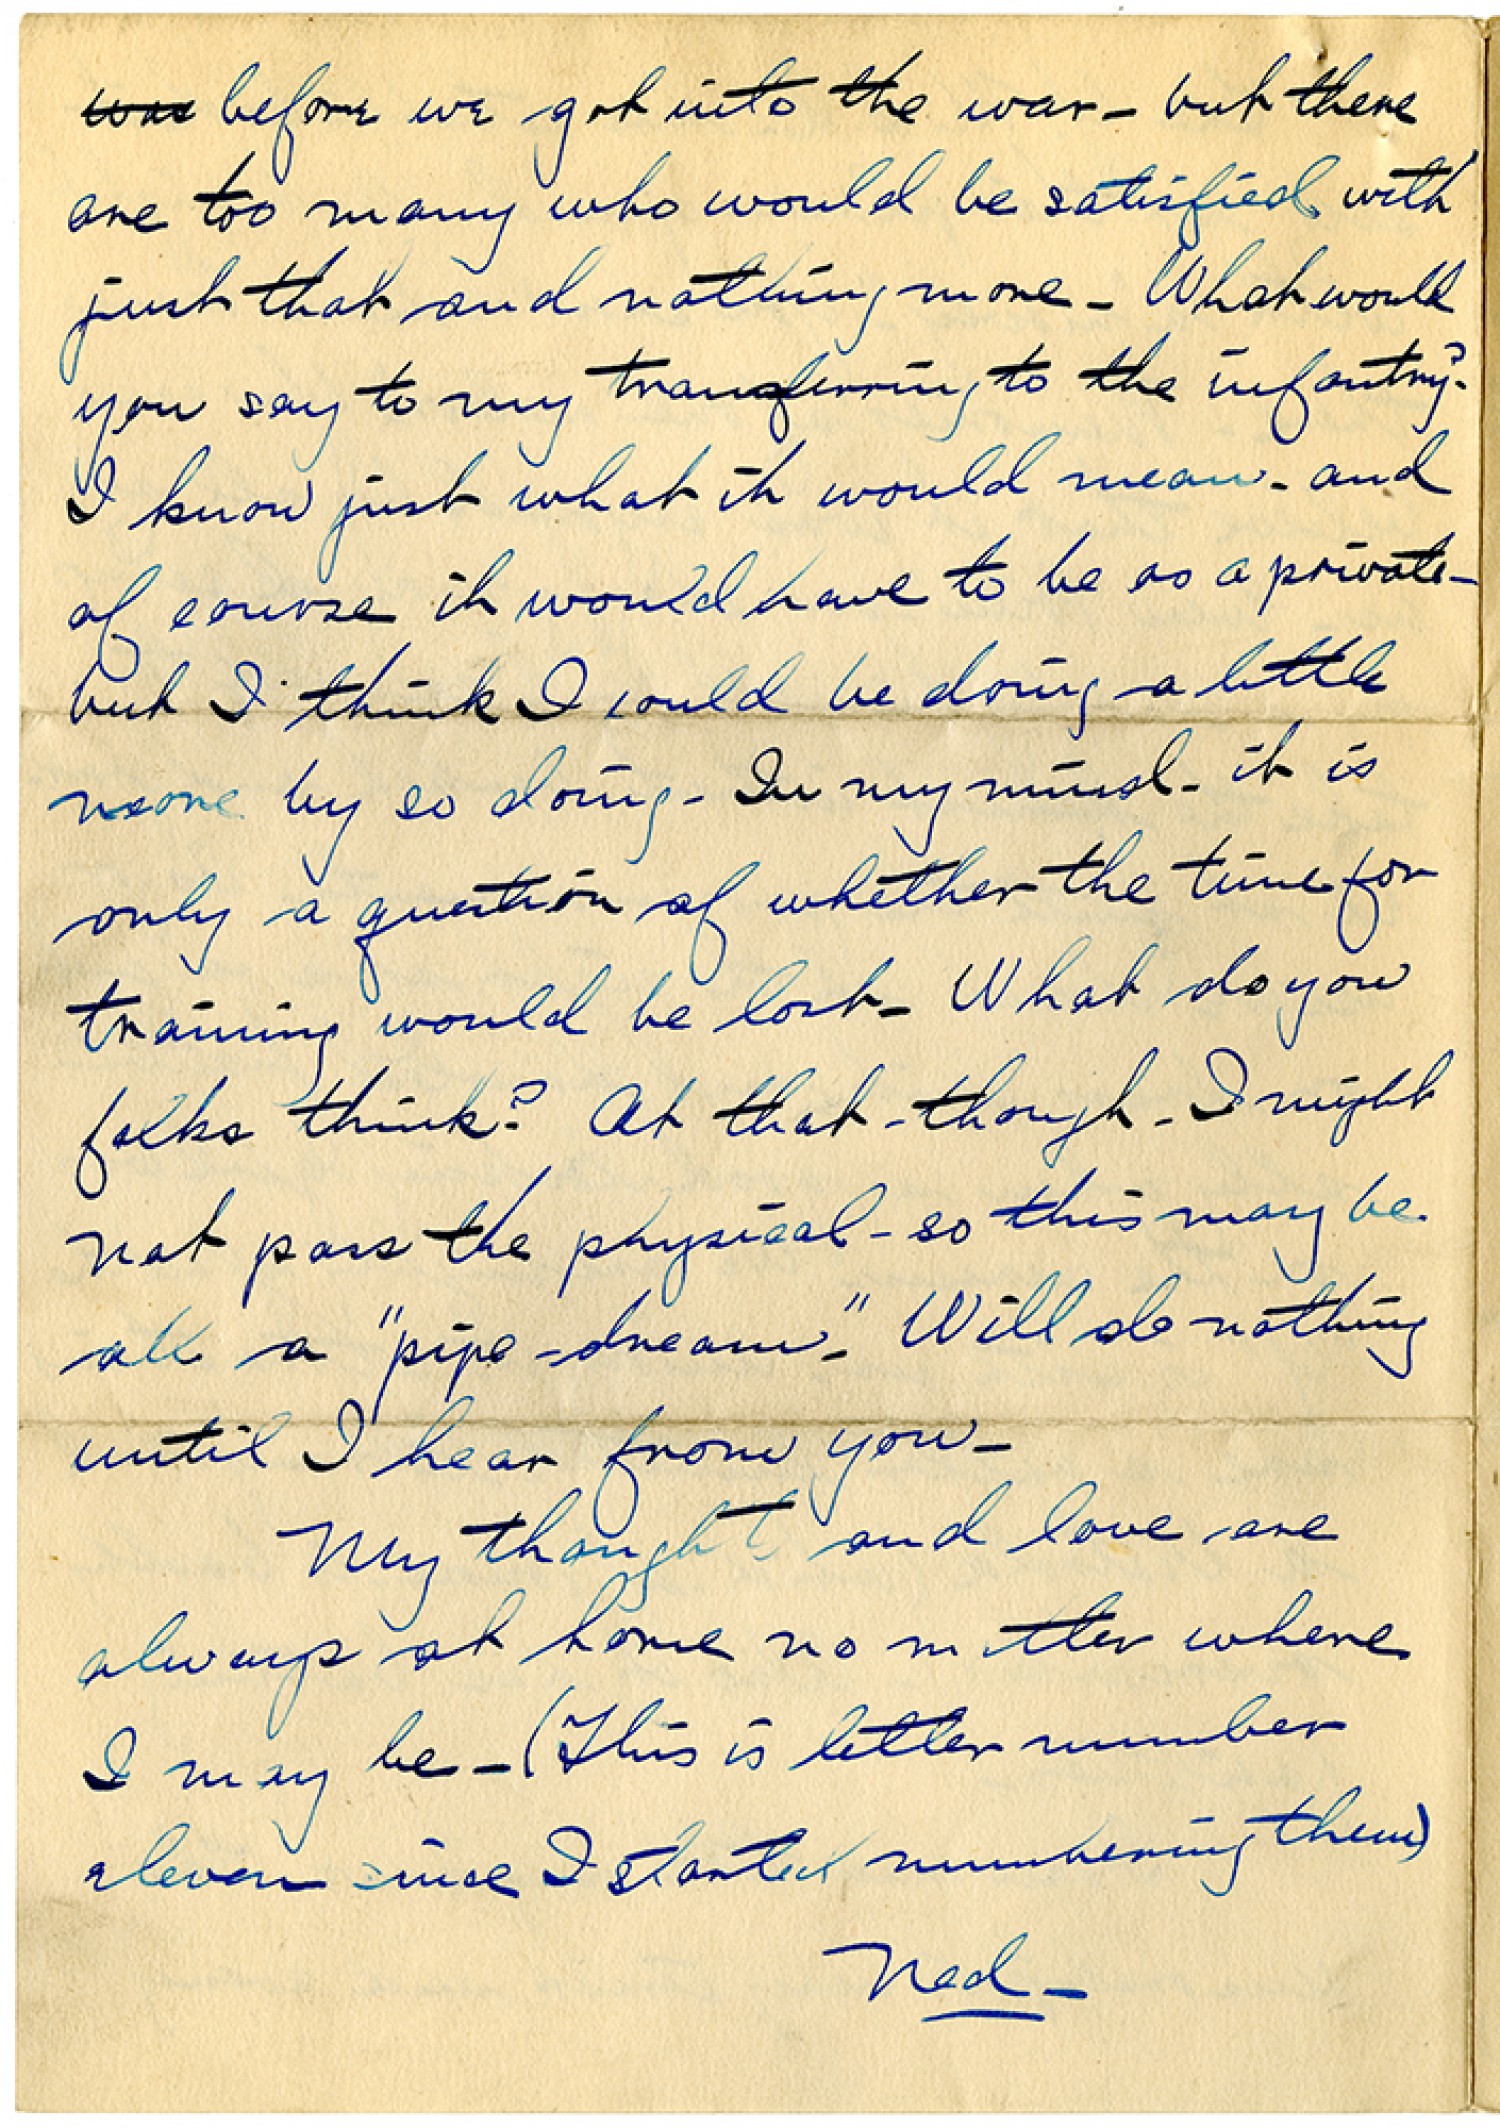 was before we got into the war - but there
are too many who would be satisfied with
just that and nothing more - What would
you say to my transferring to the infantry?
I know just what it would mean - and
of course it would have to be as a private -
but I think I could be doing a little
more by so doing - In my mind - it is
only a question of whether the time for
training would be lost - What do you
folks think? At that - though - I might
not pass the physical - so this may be
all a "pipe-dream". Will do nothing
until I hear from you -
My thought and love are
always at home no matter where
I may be - (This is letter number
eleven since I started numbering them)
Ned -